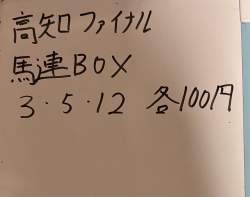 高知ファイナル
馬連BOX
3・5・12 各100円